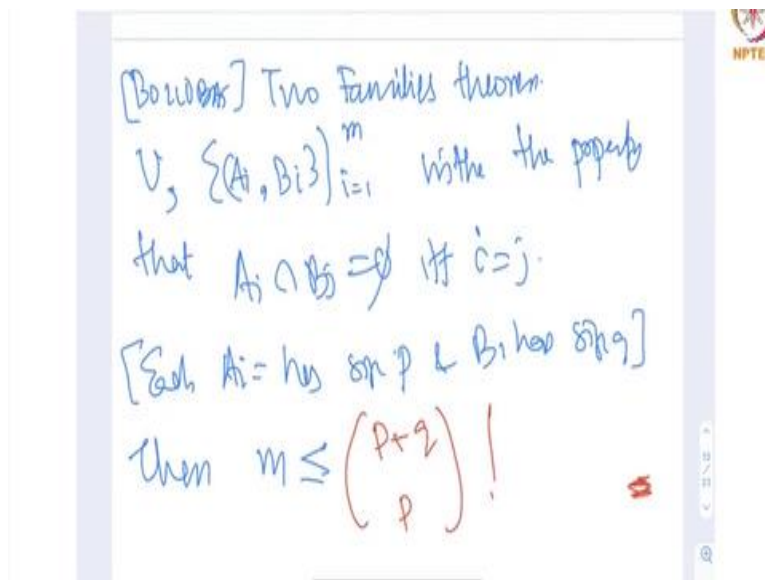 [BOLLOBAS] Two Families theorem.
U, {(Ai, Bi)}_{i=1}^{m} with the the property
that Ai ∩ Bj = ∅ iff i=j.
[Each Ai = has size p & Bi has size q]
then m ≤ (p+q
p) !
NPTE